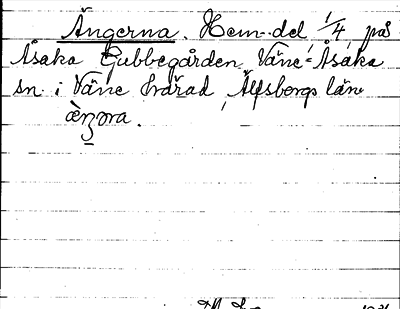 Ängerna. Hem.del 1/4 på
Åsaka Gubbegården, Väne-Åsaka
sn. i Väne härad, Älfsborgs län.